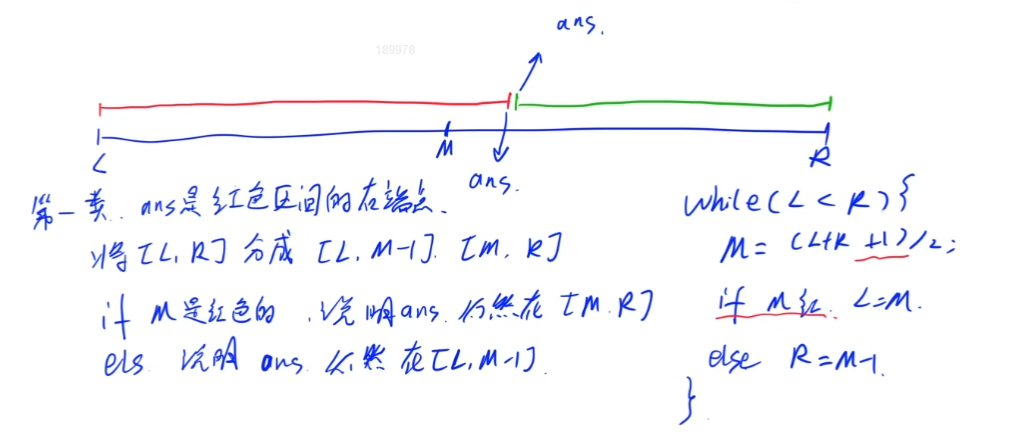 ans.
189978
L
M
R
ans.
第一类. ans是红色区间的右端点.
将[L,R]分成[L,M-1]. [M,R]
if M是红色的,说明ans仍然在[M.R]
els 说明ans仍然在[L,M-1].
while(L<R){
M=(L+R+1)/2;
if M红. L=M.
else R=M-1.
}